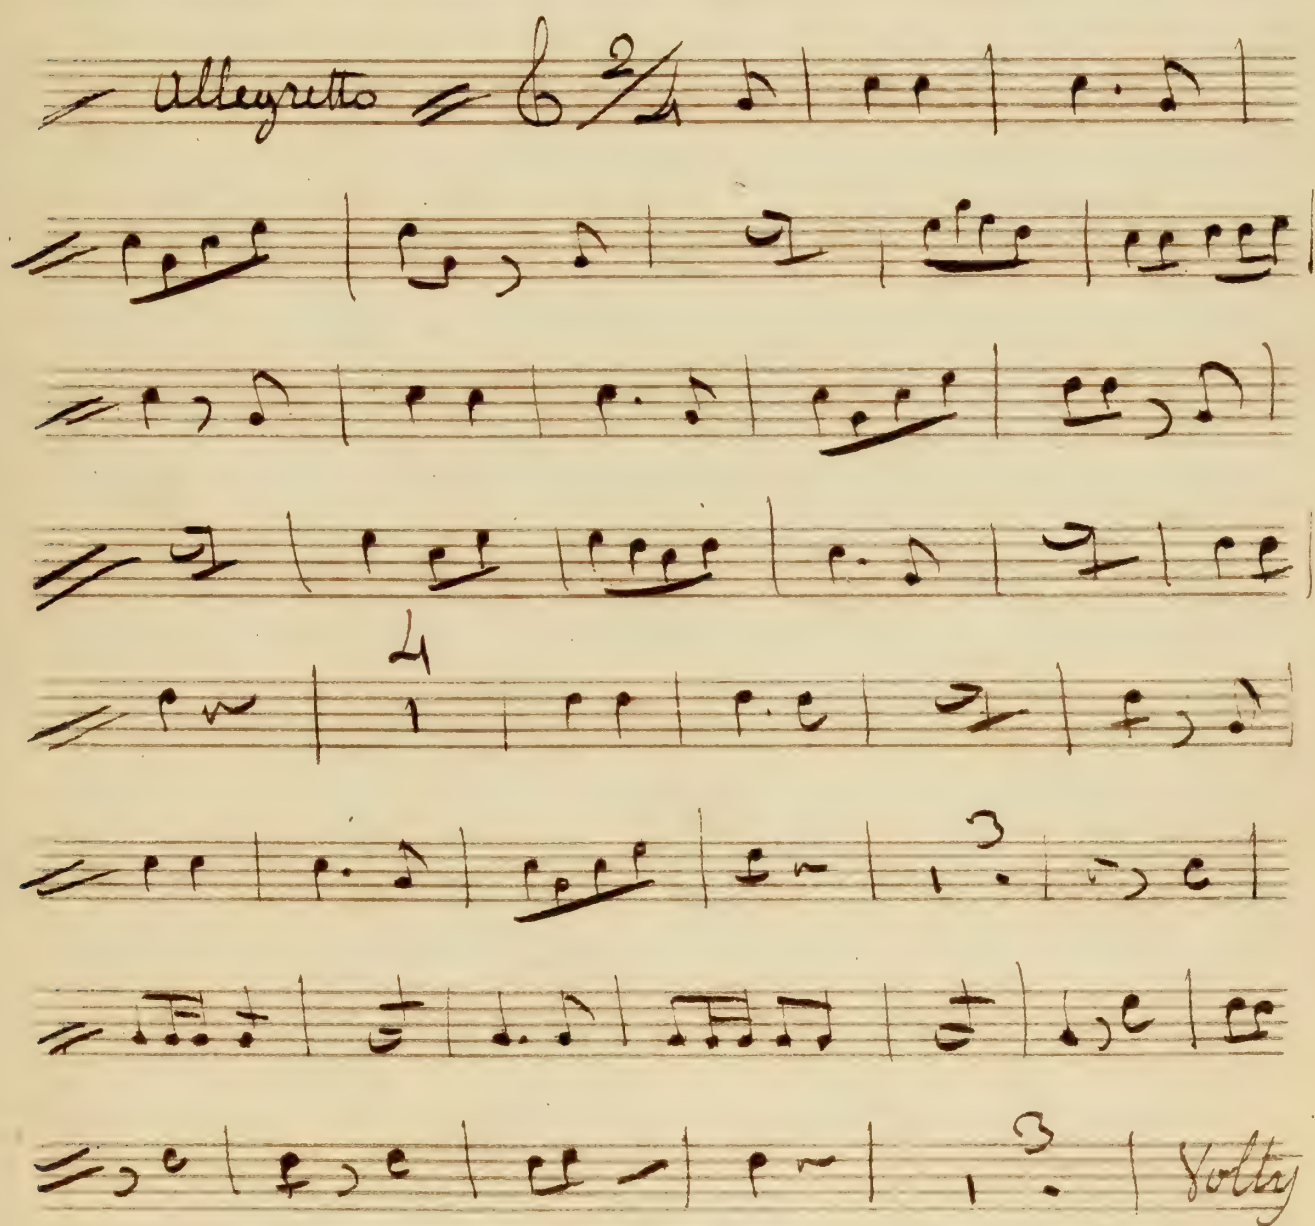 Allegretto 2/4
4
3
3
Volty